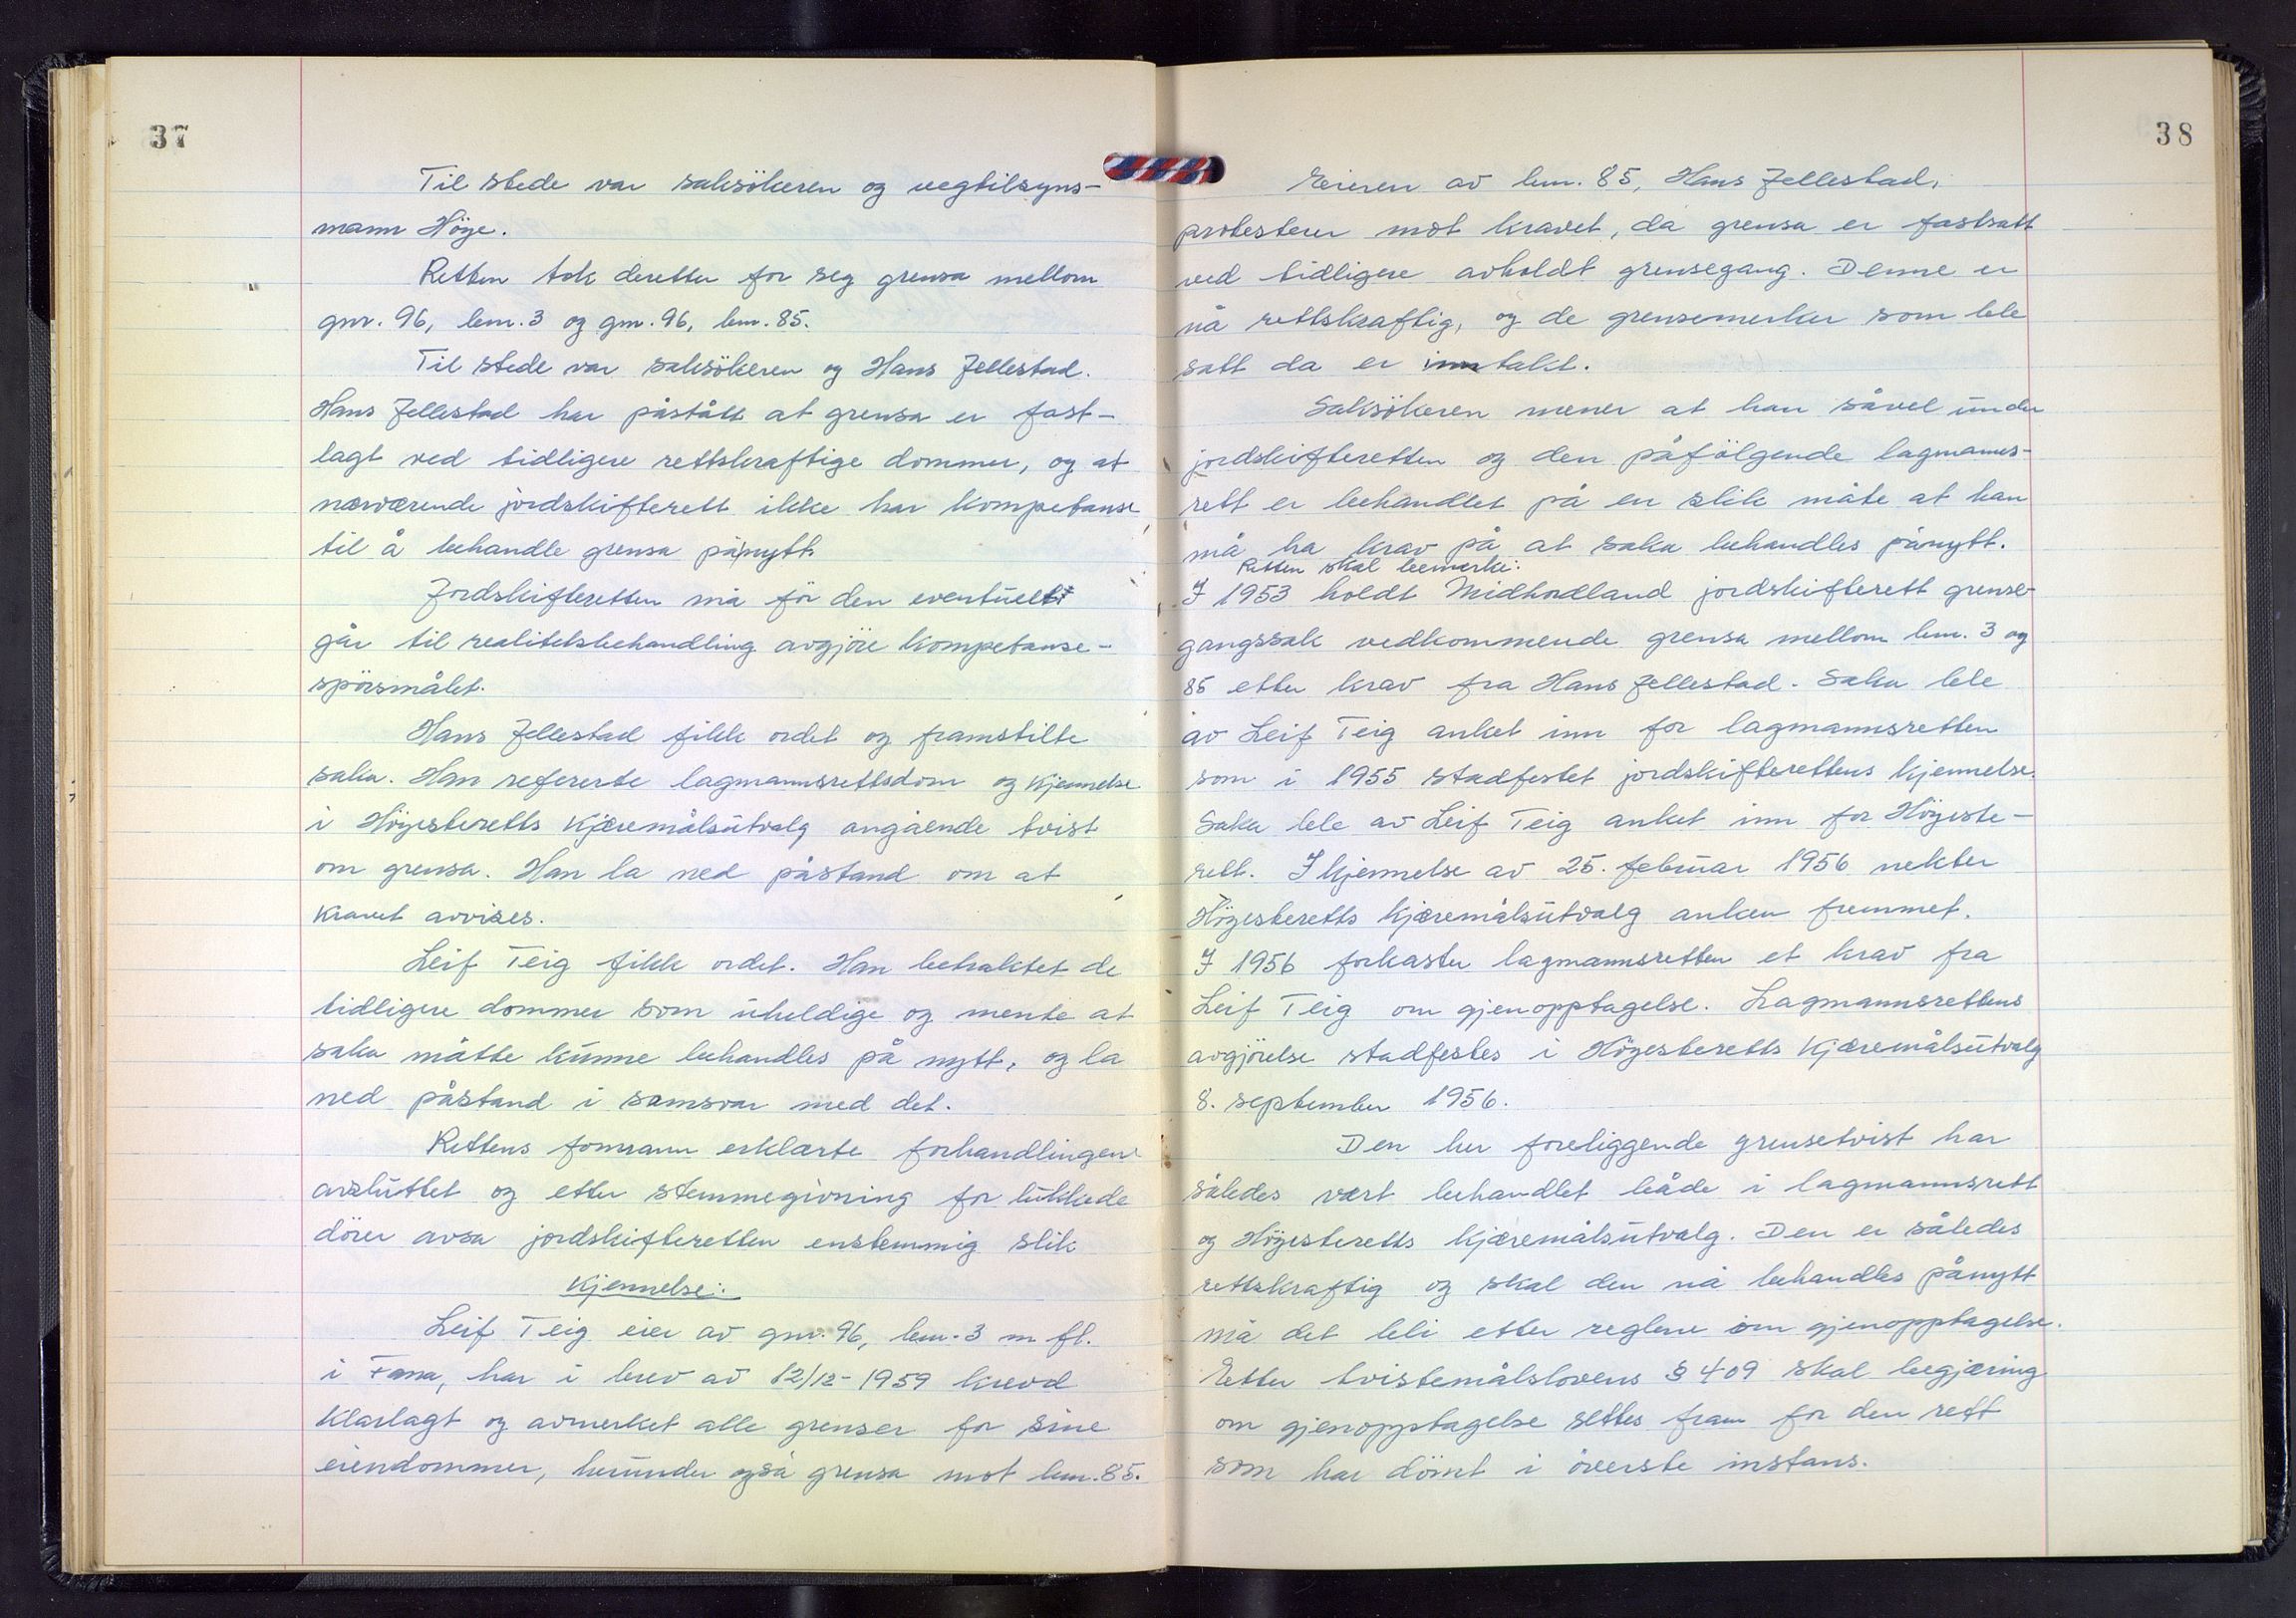 37
Til stede var saksökeren og vegtilsyns-
mann Höye.
Retten tok deretter for seg grensa mellom
gnr. 96, bnr. 3 og gnr. 96, bnr. 85.
Til stede var saksökeren og Hans Jellestad.
Hans Jellestad har påstått at grensa er fast-
lagt ved tidligere rettskraftige dommer, og at
nærværende jordskifterett ikke har kompetanse
til å behandle grensa på nytt.
Jordskifteretten må för den eventuelt
går til realitetsbehandling avgjöre kompetanse-
spörsmålet.
Hans Jellestad fikk ordet og framstilte
saka. Han refererte lagmannsrettsdom og kjennelse
i Höyesteretts kjæremålsutvalg angående tvist
om grensa. Han la ned påstand om at
kravet avvises.
Leif Teig fikk ordet. Han betraktet de
tidligere dommer som uheldige og mente at
saka måtte kunne behandles på nytt, og la
ned påstand i samsvar med det.
Rettens formann erklærte forhandlingene
avsluttet og etter stemmegivning for lukkede
dörer avsa jordskifteretten enstemmig slik
Kjennelse:
Leif Teig eier av gnr. 96, bnr. 3 m fl.
i Fana, har i brev av 12/12-1959 krevd
klarlagt og avmerket alle grenser for sine
eiendommer, herunder også grensa mot bnr. 85.
38
Eieren av bnr. 85, Hans Jellestad,
protesterer mot kravet, da grensa er fastsatt
ved tidligere avholdt grensegang. Denne er
nå rettskraftig, og de grensemerker som ble
satt da er inntakt.
Saksökeren mener at han såvel under
jordskifteretten og den påfölgende lagmanns-
rett er behandlet på en slik måte at han
må ha krav på at saka behandles pånytt.
Retten skal bemerke:
I 1953 holdt Midhordland jordskifterett grense-
gangssak vedkommende grensa mellom bnr. 3 og
85 etter krav fra Hans Jellestad. Saka ble
av Leif Teig anket inn for lagmannsretten
som i 1955 stadfestet jordskifterettens kjennelse.
Saka ble av Leif Teig anket inn for Höyeste-
rett. I kjennelse av 25. februar 1956 nekter
Höyesteretts kjæremålsutvalg anken fremmet.
I 1956 forkaster lagmannsretten et krav fra
Leif Teig om gjenopptagelse. Lagmannsrettens
avgjörelse stadfestes i Höyesteretts kjæremålsutvalg
8. september 1956.
Den her foreliggende grensetvist har
således vært behandlet både i lagmannsrett
og Höyesteretts kjæremålsutvalg. Den er således
rettskraftig og skal den nå behandles pånytt
må det bli etter reglene om gjenopptagelse.
Etter tvistemålslovens § 409 skal begjæring
om gjenopptagelse settes fram for den rett
som har dömt i överste instans.